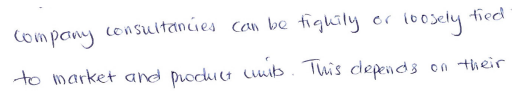 company consultancies can be tightly or loosely tied
to market and product units. This depends on their